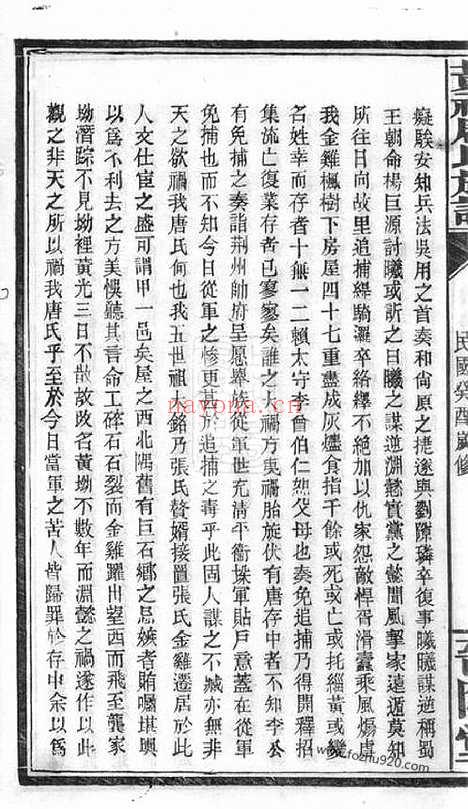 民國癸酉歲修
癡騃安知兵法吳用之首奏和尙原之捷遂與劉隙璘卒復事曦曦謀逆稱蜀
王朝命楊巨源討曦或訴之曰曦之謀逆淵懿實黨之懿聞風挈家遠遁莫知
所往日向故里追捕緹騎邏卒絡繹不絕加以仇家怨敵悍胥滑蠹乘風煽虐
我金雞楓樹下房屋四十七重盡成灰燼食指千餘或死或亡或托緇黄或變
名姓幸而存者十無一二賴太守李曾伯仁慈父母也奏免追捕乃得開釋招
集流亡復業存者已寥寥矣誰之大禍方夷禍胎旋伏有唐存中者不知李公
有免捕之奏詣荆州帥府呈愿舉族從軍世充清平衞垛軍貼戶意蓋在從軍
免捕也而不知今日從軍之慘更甚於追捕之毒乎此固人謀之不臧亦無非
天之欲禍我唐氏何也我五世祖大銘乃張氏贅婿接置張氏金雞遷居於此
人文仕宦之盛可謂甲一邑矣屋之西北隅舊有巨石鄉之忌嫉者賄囑堪輿
以爲不利去之方美懊聽其言命工碎石石裂而金雞躍出望西而飛至龔家
坳潛踪不見坳裡黄光三日不散故改名黄坳不數年而淵懿之禍遂作以此
觀之非天之所以禍我唐氏乎至於今日當軍之苦人皆歸罪於存中余以爲
nayona.cn
www.fozhu920.com